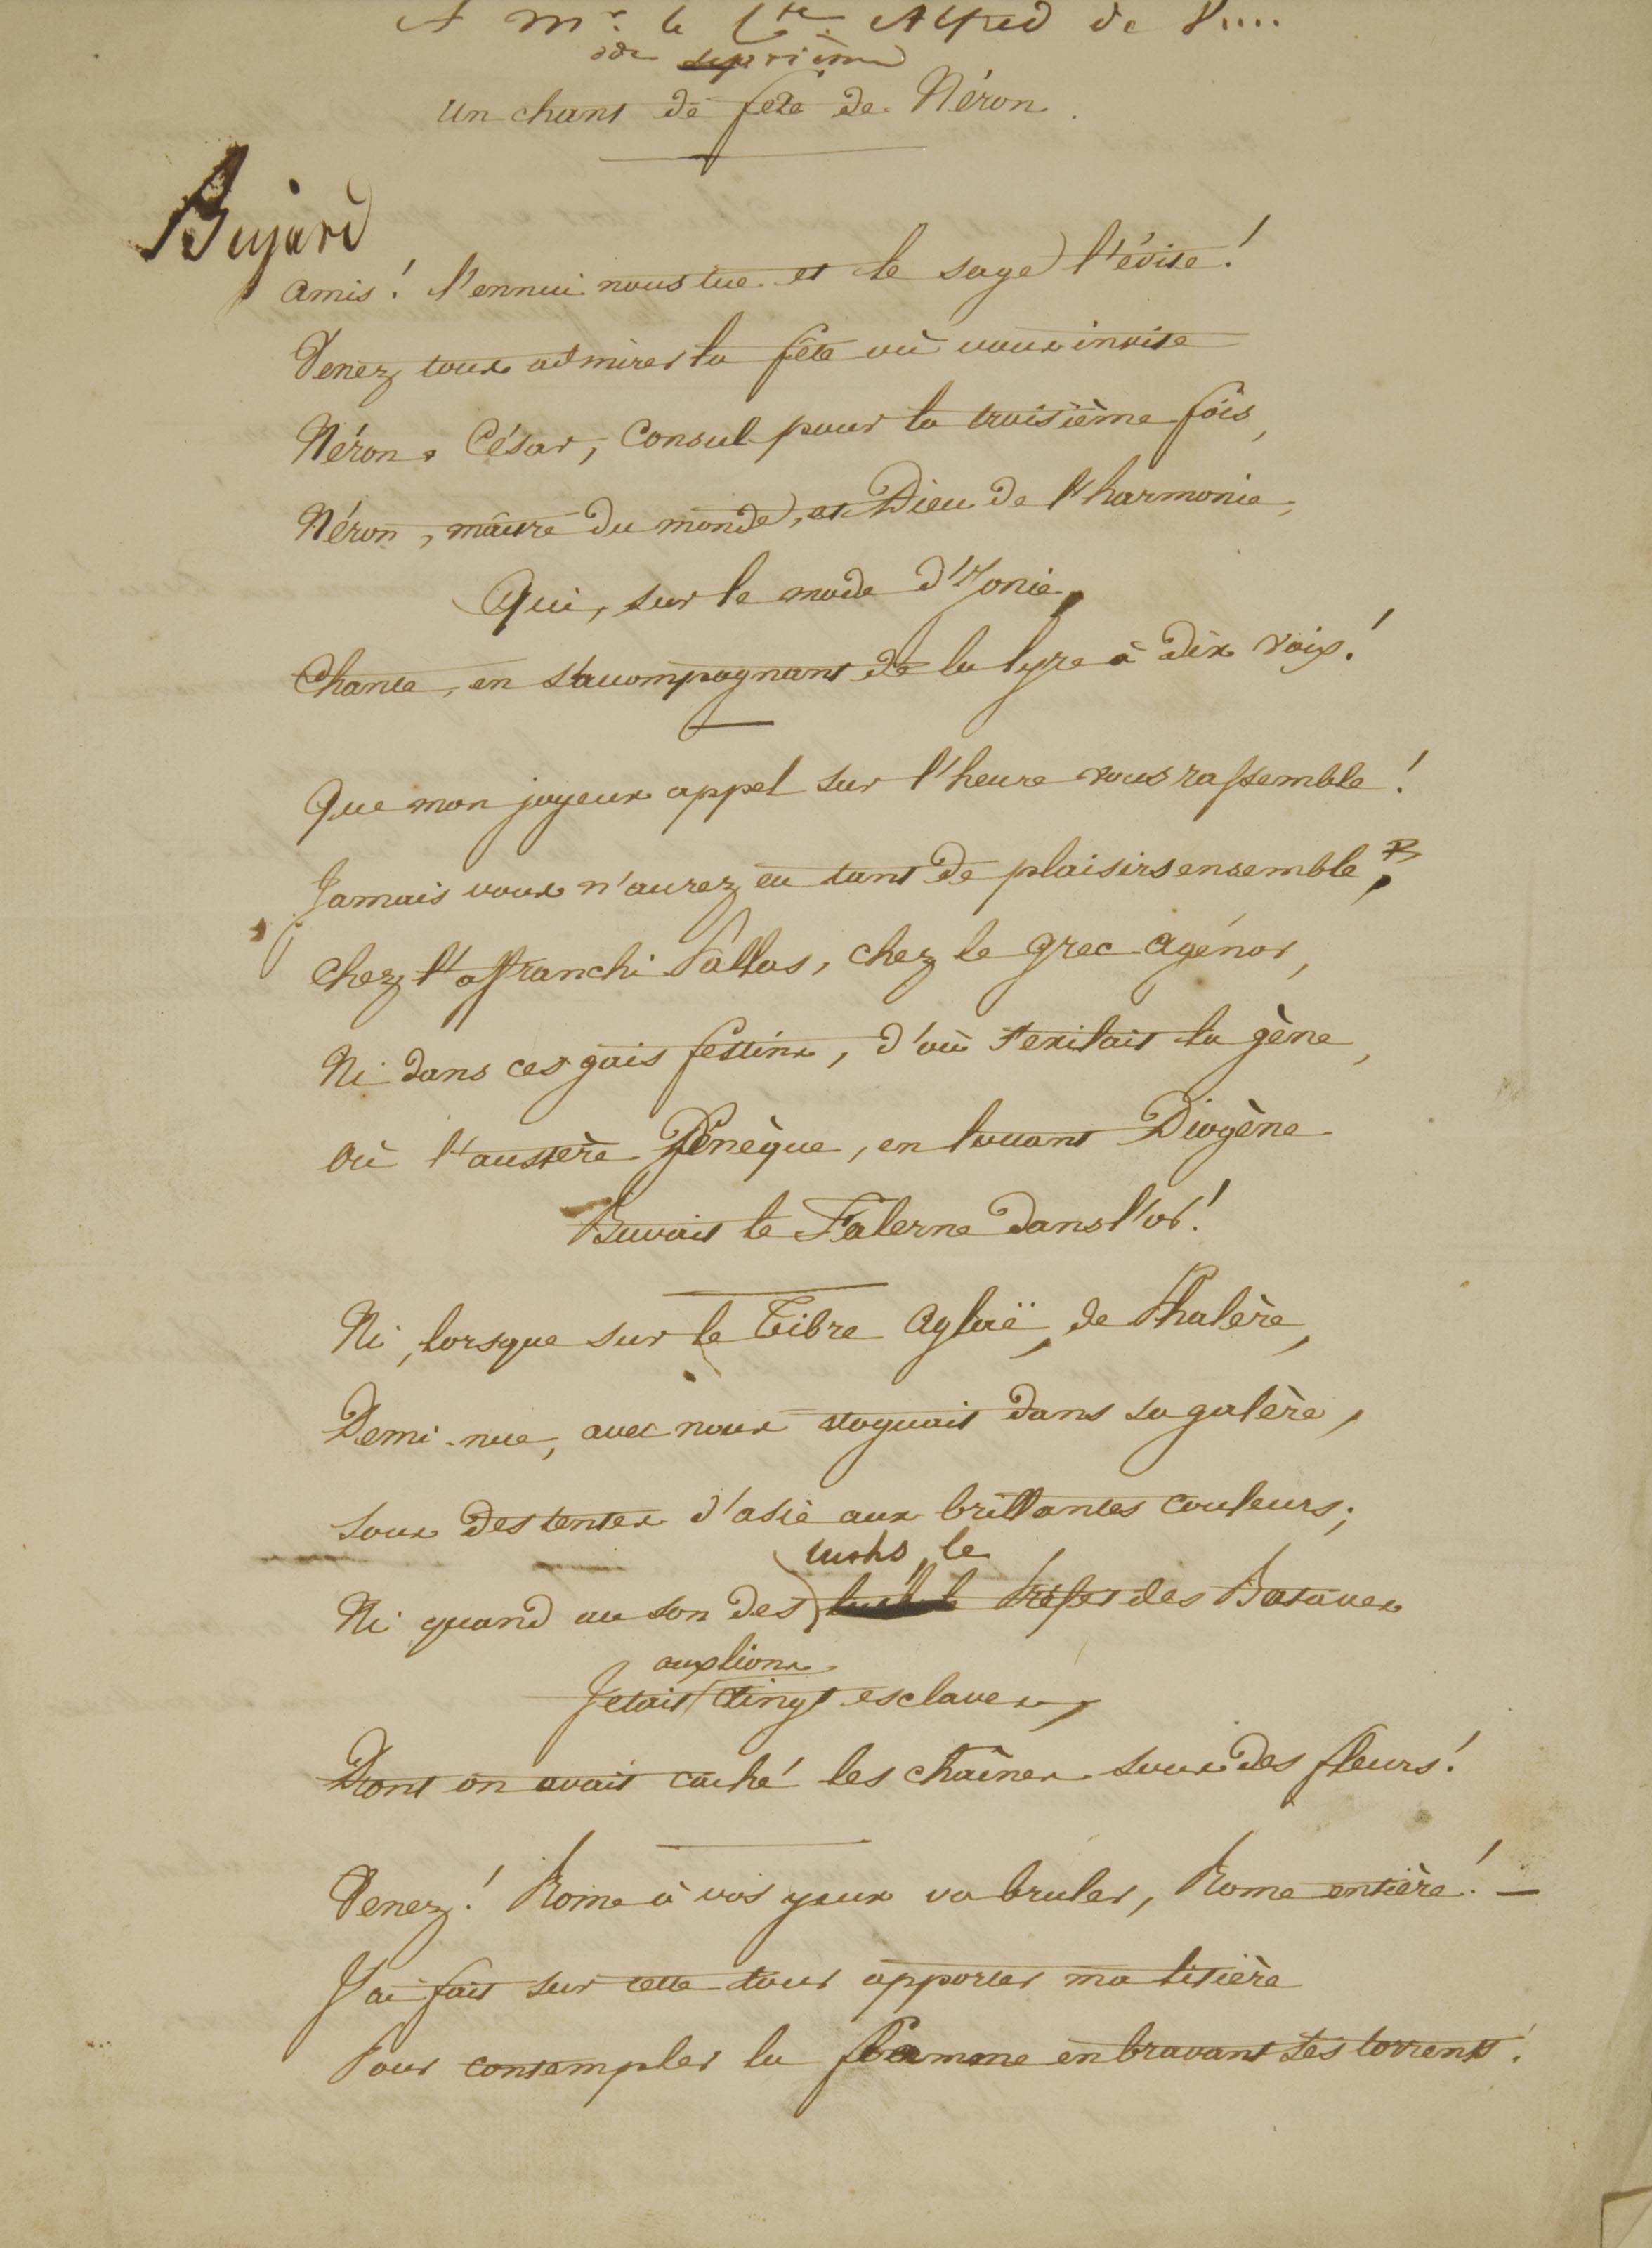 A Mr. le Cte. Alfred de V....
ode septième
Un chant de fête de Néron.
Bujard
Amis! l'ennui nous tue et le sage l'évite!
Venez tous admirer la fête où vous invite
Néron, César, Consul pour la troisième fois,
Néron, maître du monde, et Dieu de l'harmonie,
Qui, sur le mode d'Ionie,
Chante, en s'accompagnant de la lyre à dix voix!
Que mon joyeux appel sur l'heure vous rassemble!
Jamais vous n'aurez eu tant de plaisirs ensemble,
Chez l'affranchi Pallas, chez le grec Agénor,
Ni dans ces gais festins, d'où s'exilait la gène,
Où l'austère Sénèque, en louant Diogène
Buvait le Falerne dans l'or!
Ni, lorsque sur le Tibre Aglaë, de Phalère,
Demi-nue, avec nous voguait dans sa galère,
Sous des tentes d'asie aux brillantes couleurs;
luths, le
Ni quand au son des préfet des Bataves
aux lions
Jetait vingt esclaves,
Dont on avait caché les chaînes sous des fleurs!
Venez! Rome à vos yeux va bruler, Rome entière! —
J'ai fait sur cette tour apporter ma litière
Pour contempler la flamme en bravant ses torrents.